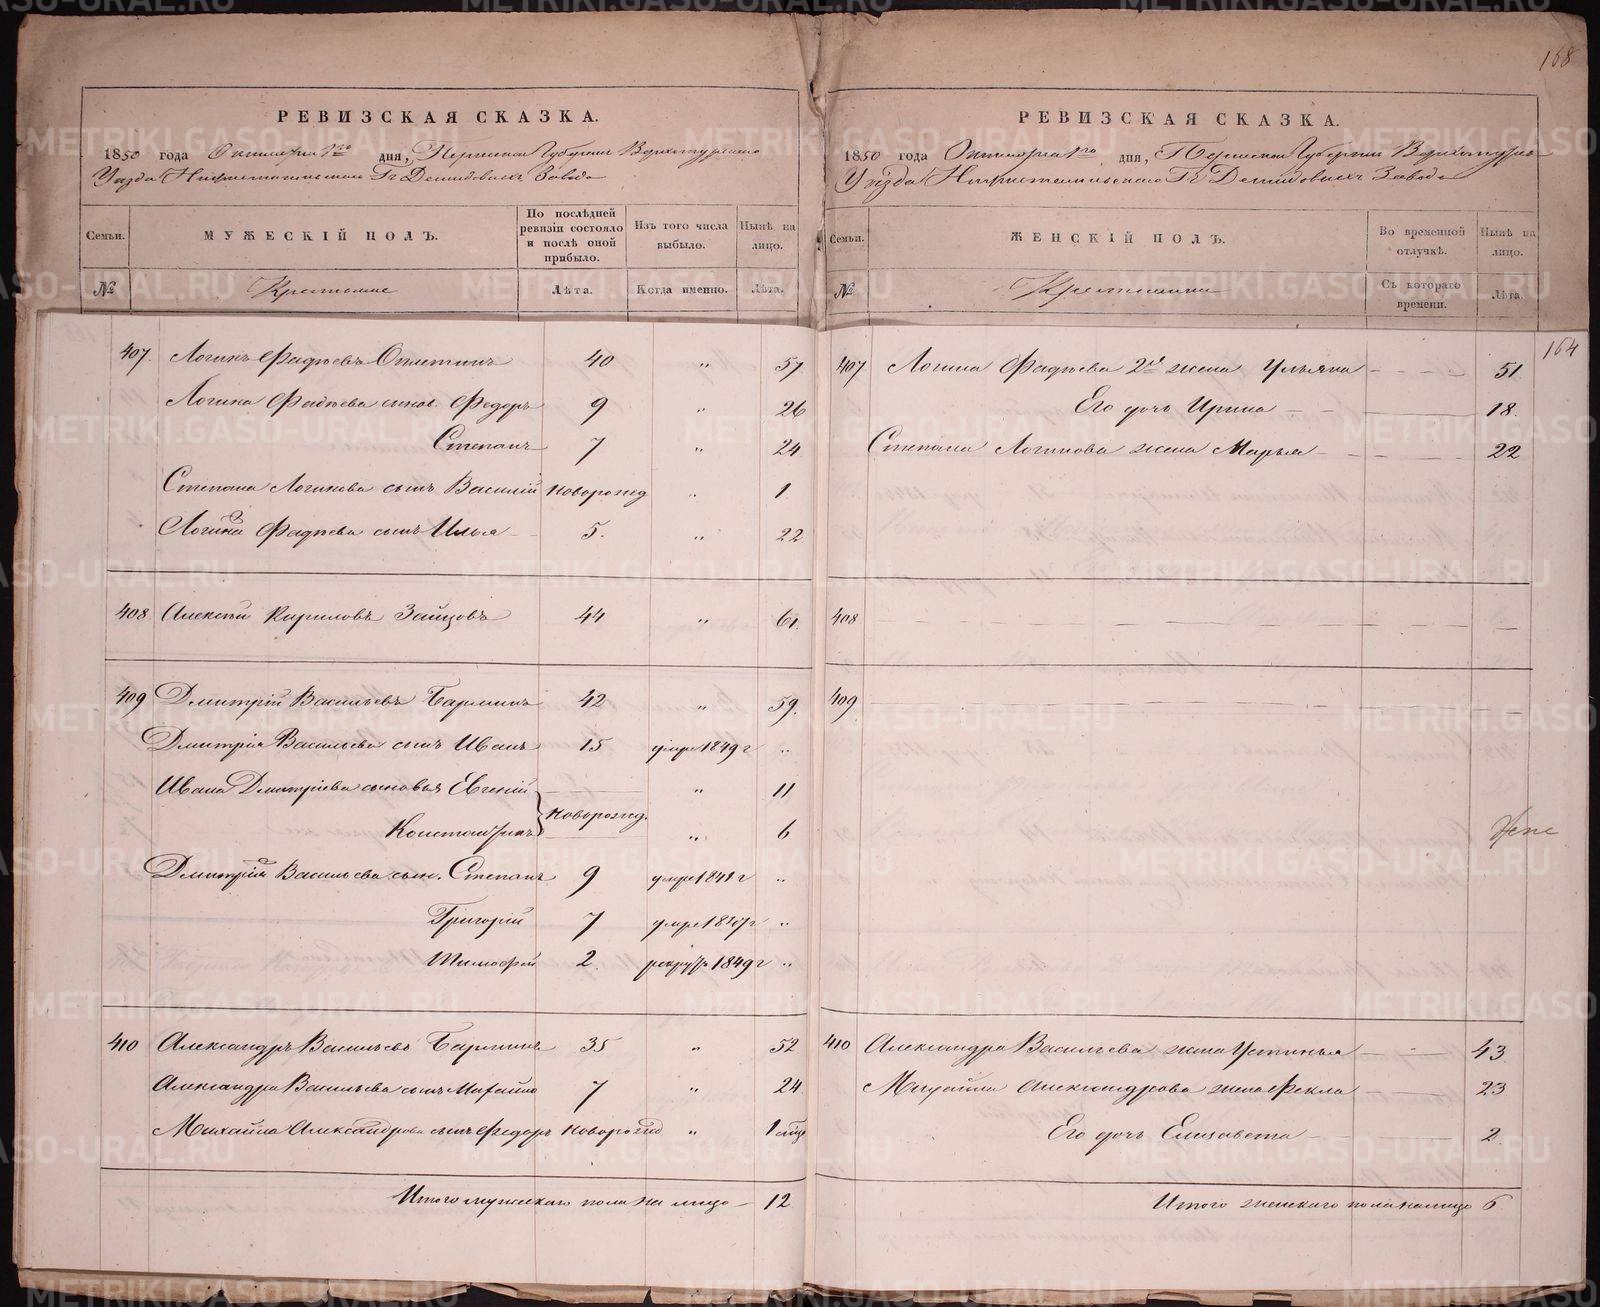 168
РЕВИЗСКАЯ СКАЗКА.
1850 года Октября 1го дня, Пермской Губернии Верхотурскаго
Уѣзда Нижнетагильскаго Гг Демидовыхъ Завода
Семьи. МУЖЕСКІЙ ПОЛЪ. По послѣдней ревизіи состояло и послѣ оной прибыло. Изъ того числа выбыло. Нынѣ на лицо.
№ Крестьяне Лѣта. Когда именно. Лѣта.
407. Логинъ Фадѣевъ Оплетинъ 40 " 57
Логина Фадѣева сынов. Федоръ 9 " 26
Степанъ 7 " 24
Степана Логинова сынъ Василий новорожд " 1
Логина Фадѣева сынъ Илья 5. " 22
408. Алексѣй Кириловъ Зайцовъ 44 " 61.
409 Дмитрій Васильевъ Бармин 42 " 59.
Дмитрія Васильева сынъ Иванъ 15 умре 1849 г "
Ивана Дмитріева сыновья Евгеній " 11
новорожд.
Константинъ " 6
Дмитрія Васильева сын. Степанъ 9 умре 1841 г "
Григорій 7 умре г "
Тимофей 2. рекрутъ 1849 г "
410 Александръ Васильевъ Барминъ 35 " 52
Александра Васильева сынъ Михайло 7 " 24
Михайла Александрова сынъ Федоръ новорожд " 1
Итого мужескаго пола на лицо - 12
РЕВИЗСКАЯ СКАЗКА.
1850 года Октября 1го дня, Пермской Губернии Верхотурск
Уѣзда Нижнетагильскаго Гг Демидовыхъ Завода
Семьи. ЖЕНСКІЙ ПОЛЪ. Во временной отлучкѣ. Нынѣ на лицо.
№ Крестьянки Съ котораго времени. Лѣта.
164
407 Логина Фадѣева 2я жена Ульяна 51
Его дочь Ирина 18.
Степана Логинова жена Марья 22
408
409.
410 Александра Васильева жена Устинья 43
Михайла Александрова жена Фекла 23
Его дочь Елисавета 2.
Итого женскаго пола налицо 6
METRIKI.GASO-URAL.RU